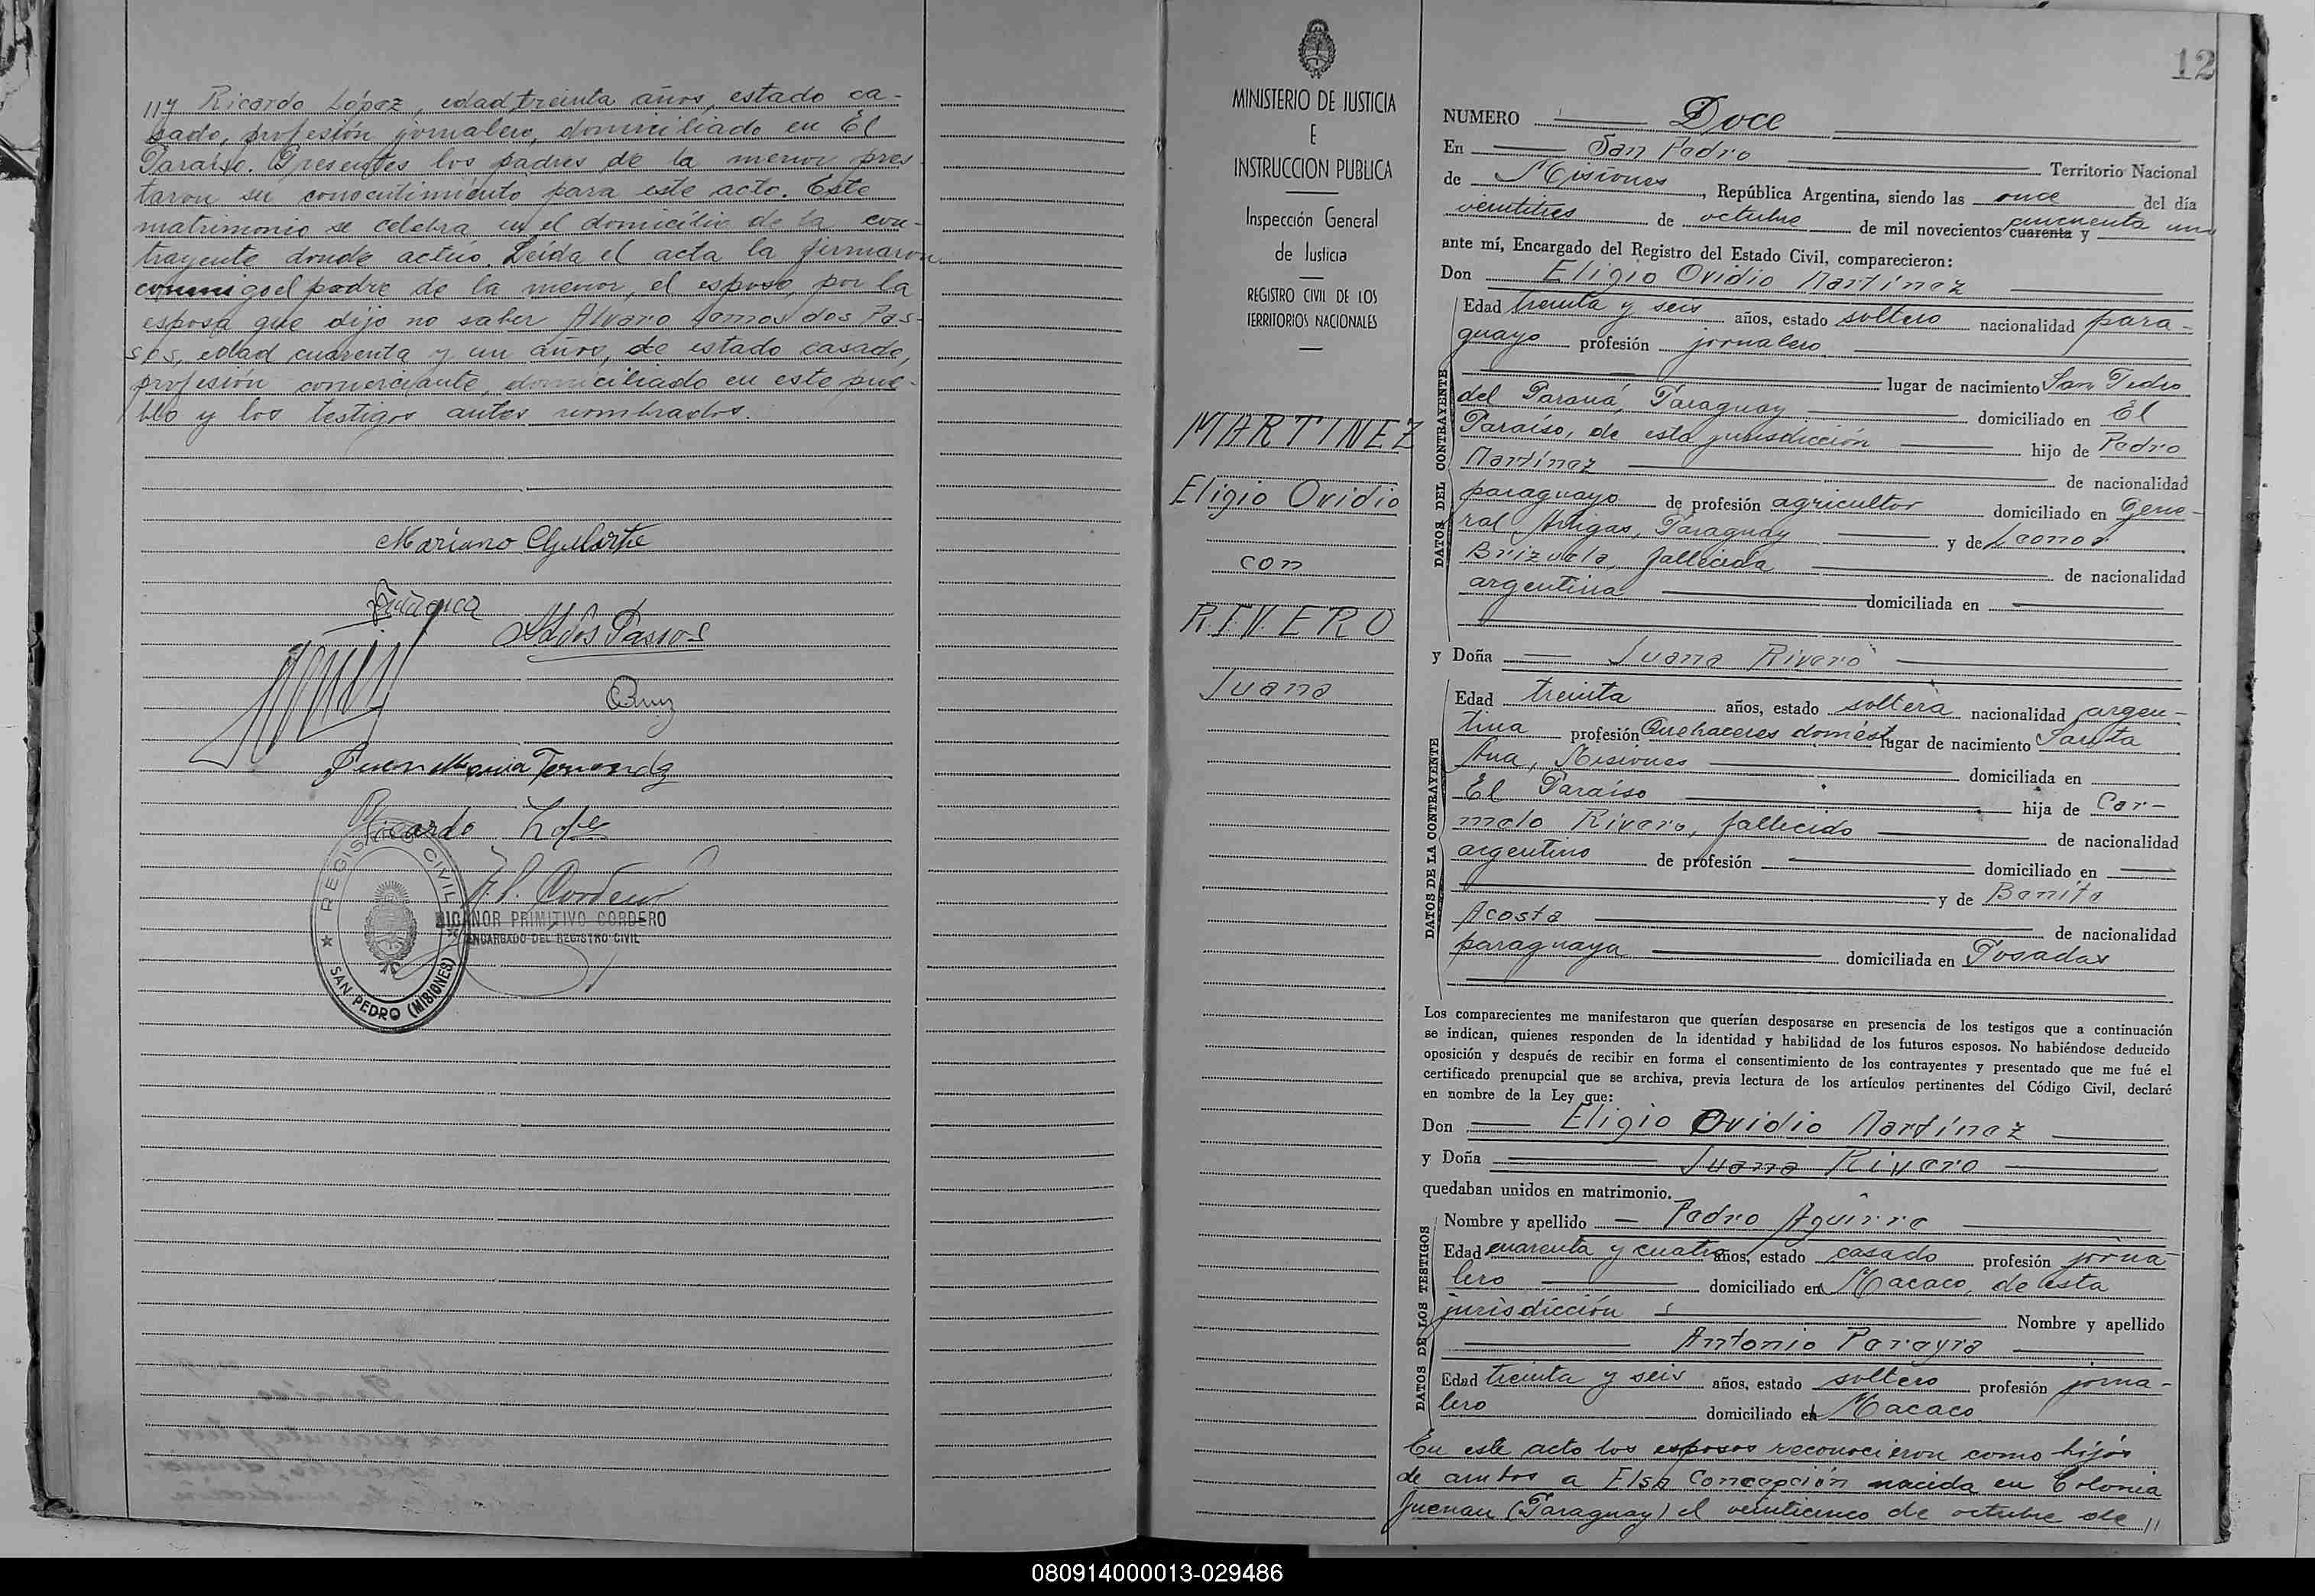 117 Ricardo López, edad treinta años, estado ca-
sado, profesión jornalero, domiciliado en El
Paraíso. Presentes los padres de la menor pres
taron su conocentimiento para este acto. Este
matrimonio se celebra en el domicilio de la con-
trayente donde actúo. Leída el acta la firmaron
conmigo el padre de la menor, el esposo, por la
esposa que dijo no saber Alvaro Gomes dos Pas-
sos, edad cuarenta y un años, de estado casado,
profesión comerciante, domiciliado en este pue-
blo y los testigos antes nombrados.
Mariano
A dos Passos
Cruz
Juan Maria
Ricardo Lopez
N. P. Cordero
NICANOR PRIMITIVO CORDERO
ENCARGADO DEL REGISTRO CIVIL
REGISTRO CIVIL
SAN PEDRO (MISIONES)
MINISTERIO DE JUSTICIA
E
INSTRUCCION PUBLICA
Inspección General
de Justicia
REGISTRO CIVIL DE LOS
TERRITORIOS NACIONALES
MARTINEZ
Eligio Ovidio
con
RIVERO
Juana
12
NUMERO Doce
En San Pedro Territorio Nacional
de Misiones, República Argentina, siendo las once del día
veintitres de octubre de mil novecientos cuarenta y cincuenta uno
ante mí, Encargado del Registro del Estado Civil, comparecieron:
Don Eligio Ovidio Martínez
DATOS DEL CONTRAYENTE
Edad treinta y seis años, estado soltero nacionalidad para-
guayo profesión jornalero
lugar de nacimiento San Pedro
del Paraná, Paraguay domiciliado en El
Paraíso, de esta jurisdicción hijo de Pedro
Martínez de nacionalidad
paraguayo de profesión agricultor domiciliado en Gene-
ral Artigas, Paraguay y de Leonor
Brizuela, fallecida de nacionalidad
argentina domiciliada en
y Doña Juana Rivero
DATOS DE LA CONTRAYENTE
Edad treinta años, estado soltera nacionalidad argen-
tina profesión Quehaceres domést lugar de nacimiento Santa
Ana, Misiones domiciliada en
El Paraíso hija de Car-
melo Rivero, fallecido de nacionalidad
argentino de profesión domiciliado en
y de Benita
Acosta de nacionalidad
paraguaya domiciliada en Posadas
Los comparecientes me manifestaron que querían desposarse en presencia de los testigos que a continuación
se indican, quienes responden de la identidad y habilidad de los futuros esposos. No habiéndose deducido
oposición y después de recibir en forma el consentimiento de los contrayentes y presentado que me fué el
certificado prenupcial que se archiva, previa lectura de los artículos pertinentes del Código Civil, declaré
en nombre de la Ley que:
Don Eligio Ovidio Martínez
y Doña Juana Rivero
quedaban unidos en matrimonio.
DATOS DE LOS TESTIGOS
Nombre y apellido Pedro Aguirre
Edad cuarenta y cuatro años, estado casado profesión jorna-
lero domiciliado en Macaco, de esta
jurisdicción Nombre y apellido
Antonio Pereyra
Edad treinta y seis años, estado soltero profesión jorna-
lero domiciliado en Macaco
En este acto los esposos reconocieron como hijos
de ambos a Elsa Concepción nacida en Colonia
Juenau (Paraguay) el veinticinco de octubre de //
080914000013-029486